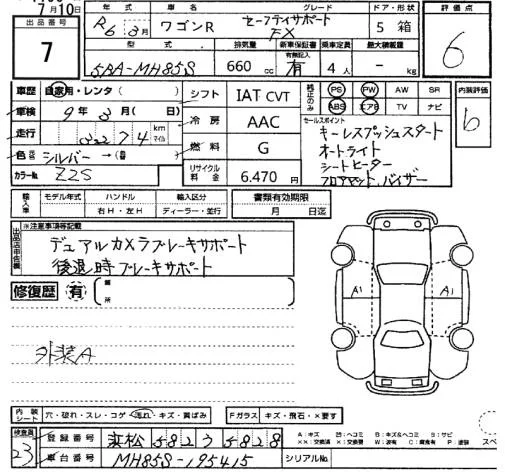 7月10日
出品番号
7
年式 車名 グレード ドア・形状 評価点
R6 3月 ワゴンR セーフティサポート FX 5 箱 6
型式 排気量 新車保証書 乗車定員 最大積載量
有無記入
5AA-MH85S 660 cc 有 4 人 - kg
車歴 自家用・レンタ ( ) シフト IAT CVT 純正のみ PS PW AW SR 内装評価
車検 9年 3月 ( 日) ABS エアB TV ナビ b
冷房 AAC セールスポイント
走行 02274 km マイル キーレスプッシュスタート
オートライト
色 元色 シルバー → ( 色 燃料 G シートヒーター
カラーNo. Z2S リサイクル料金 6.470 円 フロアマット、バイザー
輸入車 モデル年式 ハンドル 輸入区分 書類有効期限
右H・左H ディーラー・並行 月 日迄
出品店申告表 ※注意事項等記載
デュアルカメラブレーキサポート
後退時ブレーキサポート
修復歴 有 ( 箇所
外装A
A1 A1
内装シート 穴・破れ・スレ・コゲ・汚れ・キズ・黄ばみ Fガラス キズ・飛石・×要す
検査員 23
登録番号 浜松 582 う 5828
車台番号 MH85S-195415 シリアルNo.
A:キズ U:凹ヘコミ B:キズ&ヘコミ S:サビ
XX:交換済 X:交換要 W:波有 C:腐食有 P:塗要